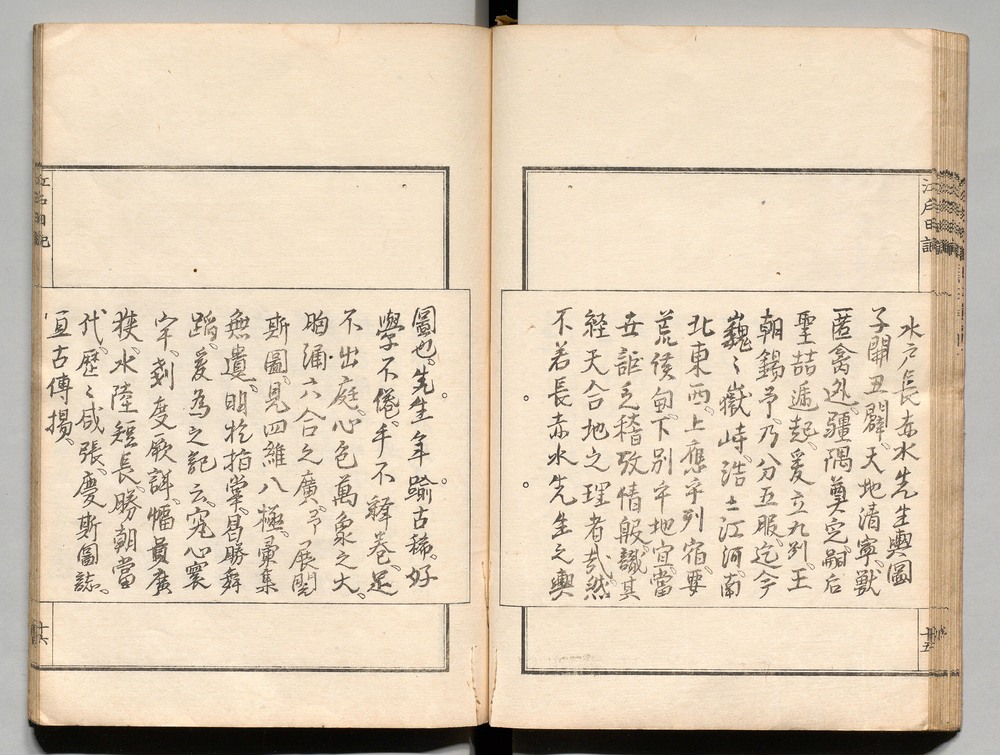 水戸長赤水先生輿圖
子開丑闢、天地清寧、獸
匿禽迯、疆隅奠定、嗣后
聖喆遞起、爰立九列、王
朝錫予、乃分五服、迄今
巍々嶽峙、浩々江河、南
北東西、上應乎列宿、要
荒侯甸、下別乎地宜、當
世詎乏稽攷情殷、識其
経天合地之理者哉、然
不若長赤水先生之輿
圖也、先生年踰古稀、好
學不倦、手不釋卷、足
不出庭、心包萬象之大、
胸涌六合之廣、予展閱
斯圖、見四維八極、彙集
無遺、明於指掌、昌勝舞
蹈、爰為之記云、究心寰
宇、刻度厥詳、幅員廣
狹、水陸短長、勝朝當
代、歴々咸張、慶斯圖誌、
亘古傳揚、
江戸日記
廿五